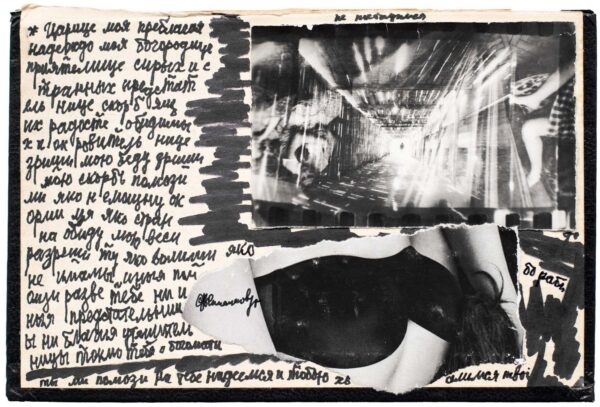 не постыдимся
* Царице моя преблагая
надеждо моя богородице
приятелище сирых и с
транных предстат
ельнице скорбящ
их радосте обидимы
х покровительнице
зриши мою беду зриши
мою скорбь помози
ми яко немощну ок
орми мя яко стран
на обиду мою веси
разреши ту яко волиши яко
не имамы иныя пом
ощи разве тебе ни и
ныя предстательни
ницы токмо тебе о богомати
ты ми помози на тебе надеемся и тобою хв
алимся твои
бо раби